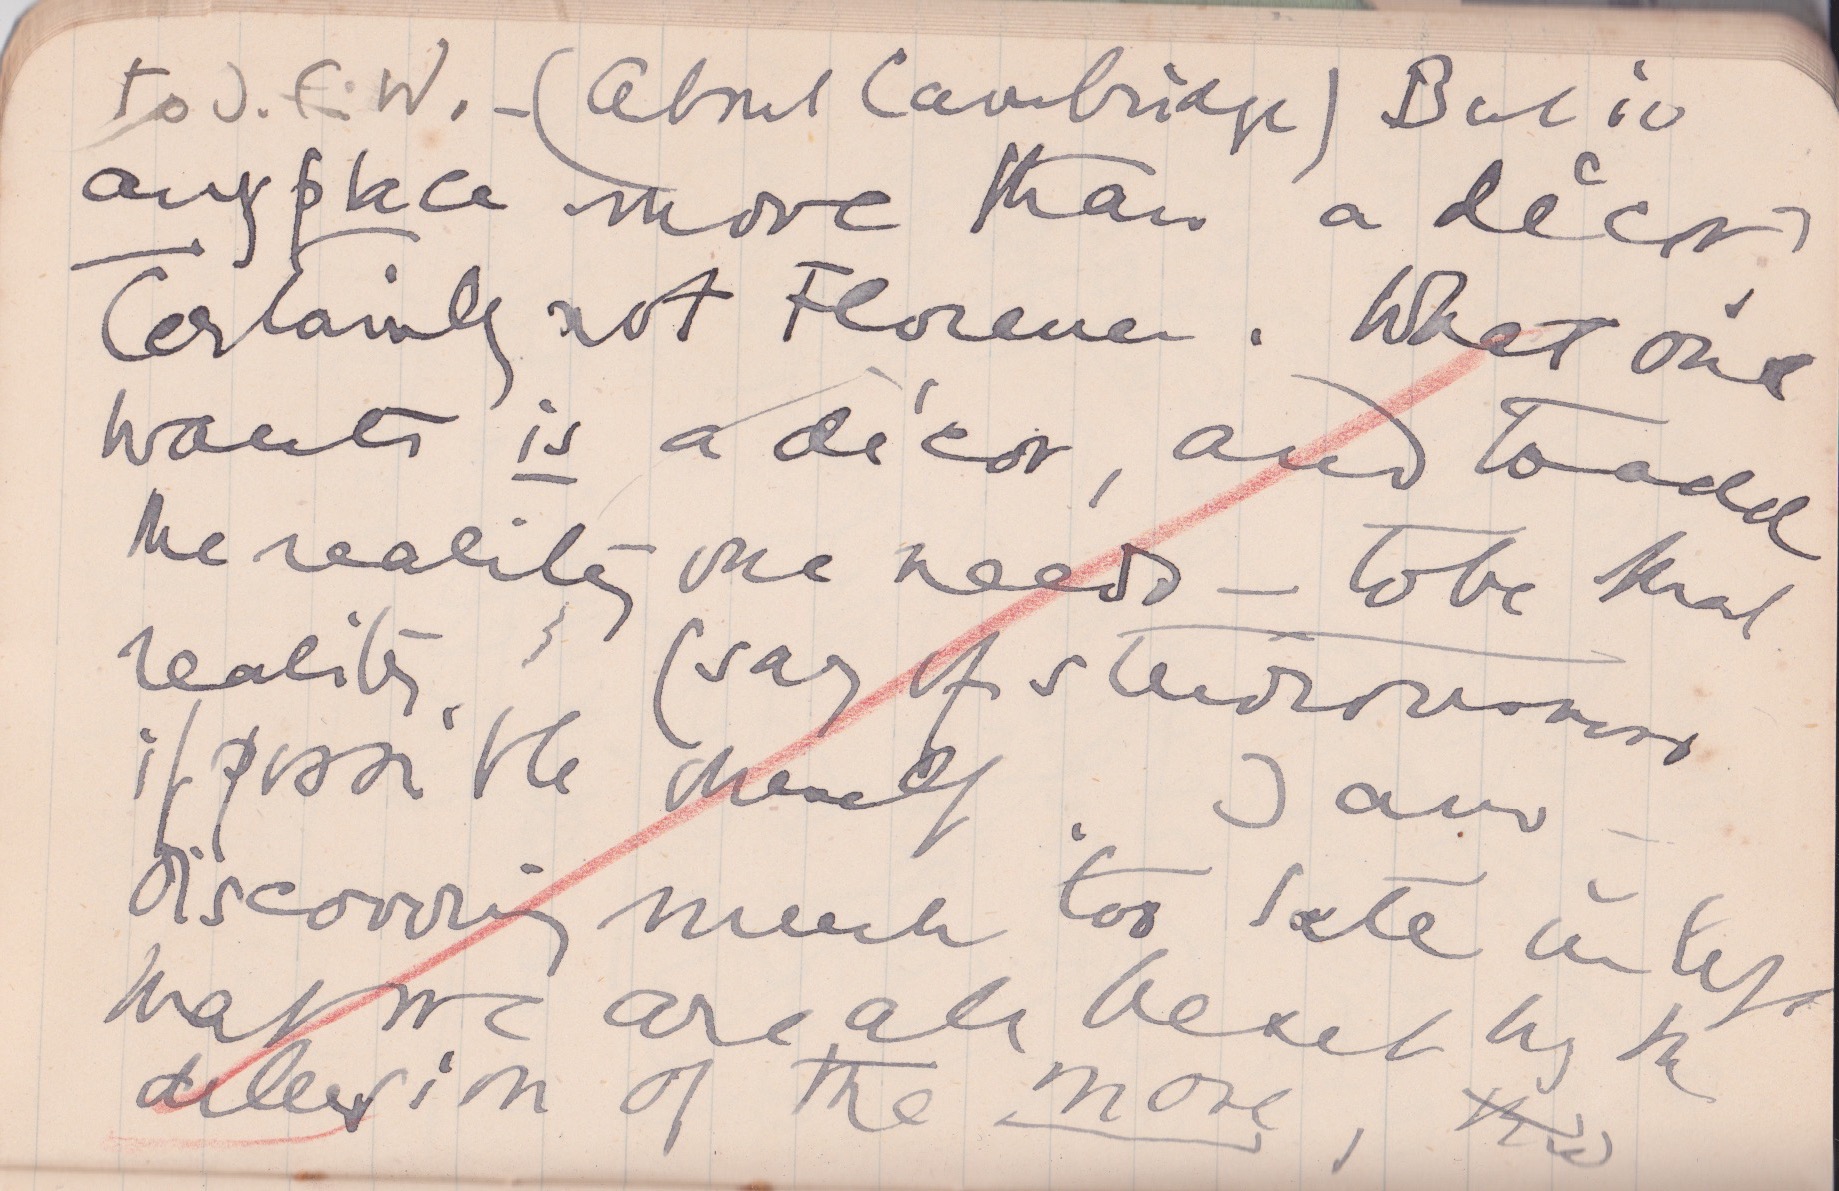 to J. E. W. – (About Cambridge) But is
any place more than a décor?
Certainly not Florence. What one
wants is a décor, and to add
the reality one needs – to be that
reality, (say of
if possible oneself. I am
discovering much too late in life
that we are all beset by the
delusion of the more,